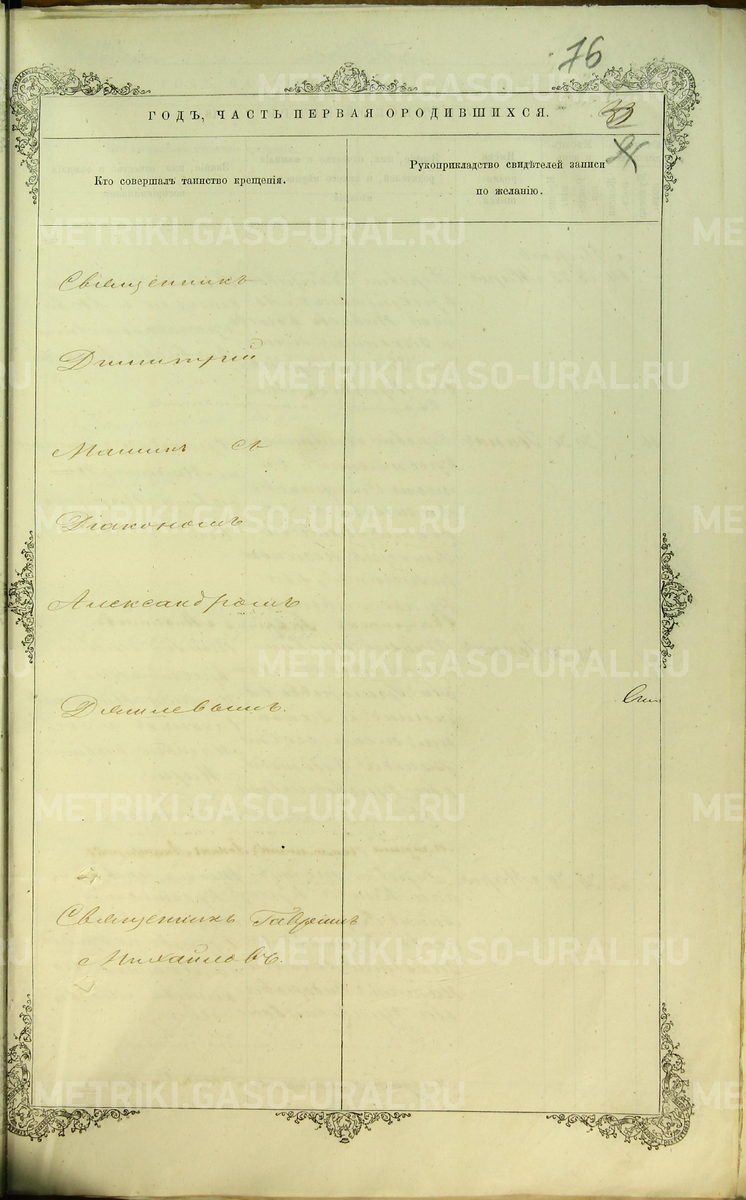 76
ГОДЪ, ЧАСТЬ ПЕРВАЯ ОРОДИВШИХСЯ.
33
Кто совершалъ таинство крещенія.
Рукоприкладство свидѣтелей записи
по желанію.
Священникъ
Димитрій
Мишинъ съ
Діакономъ
Александромъ
Священникъ Гавріилъ
Михайловъ.
METRIKI.GASO-URAL.RU